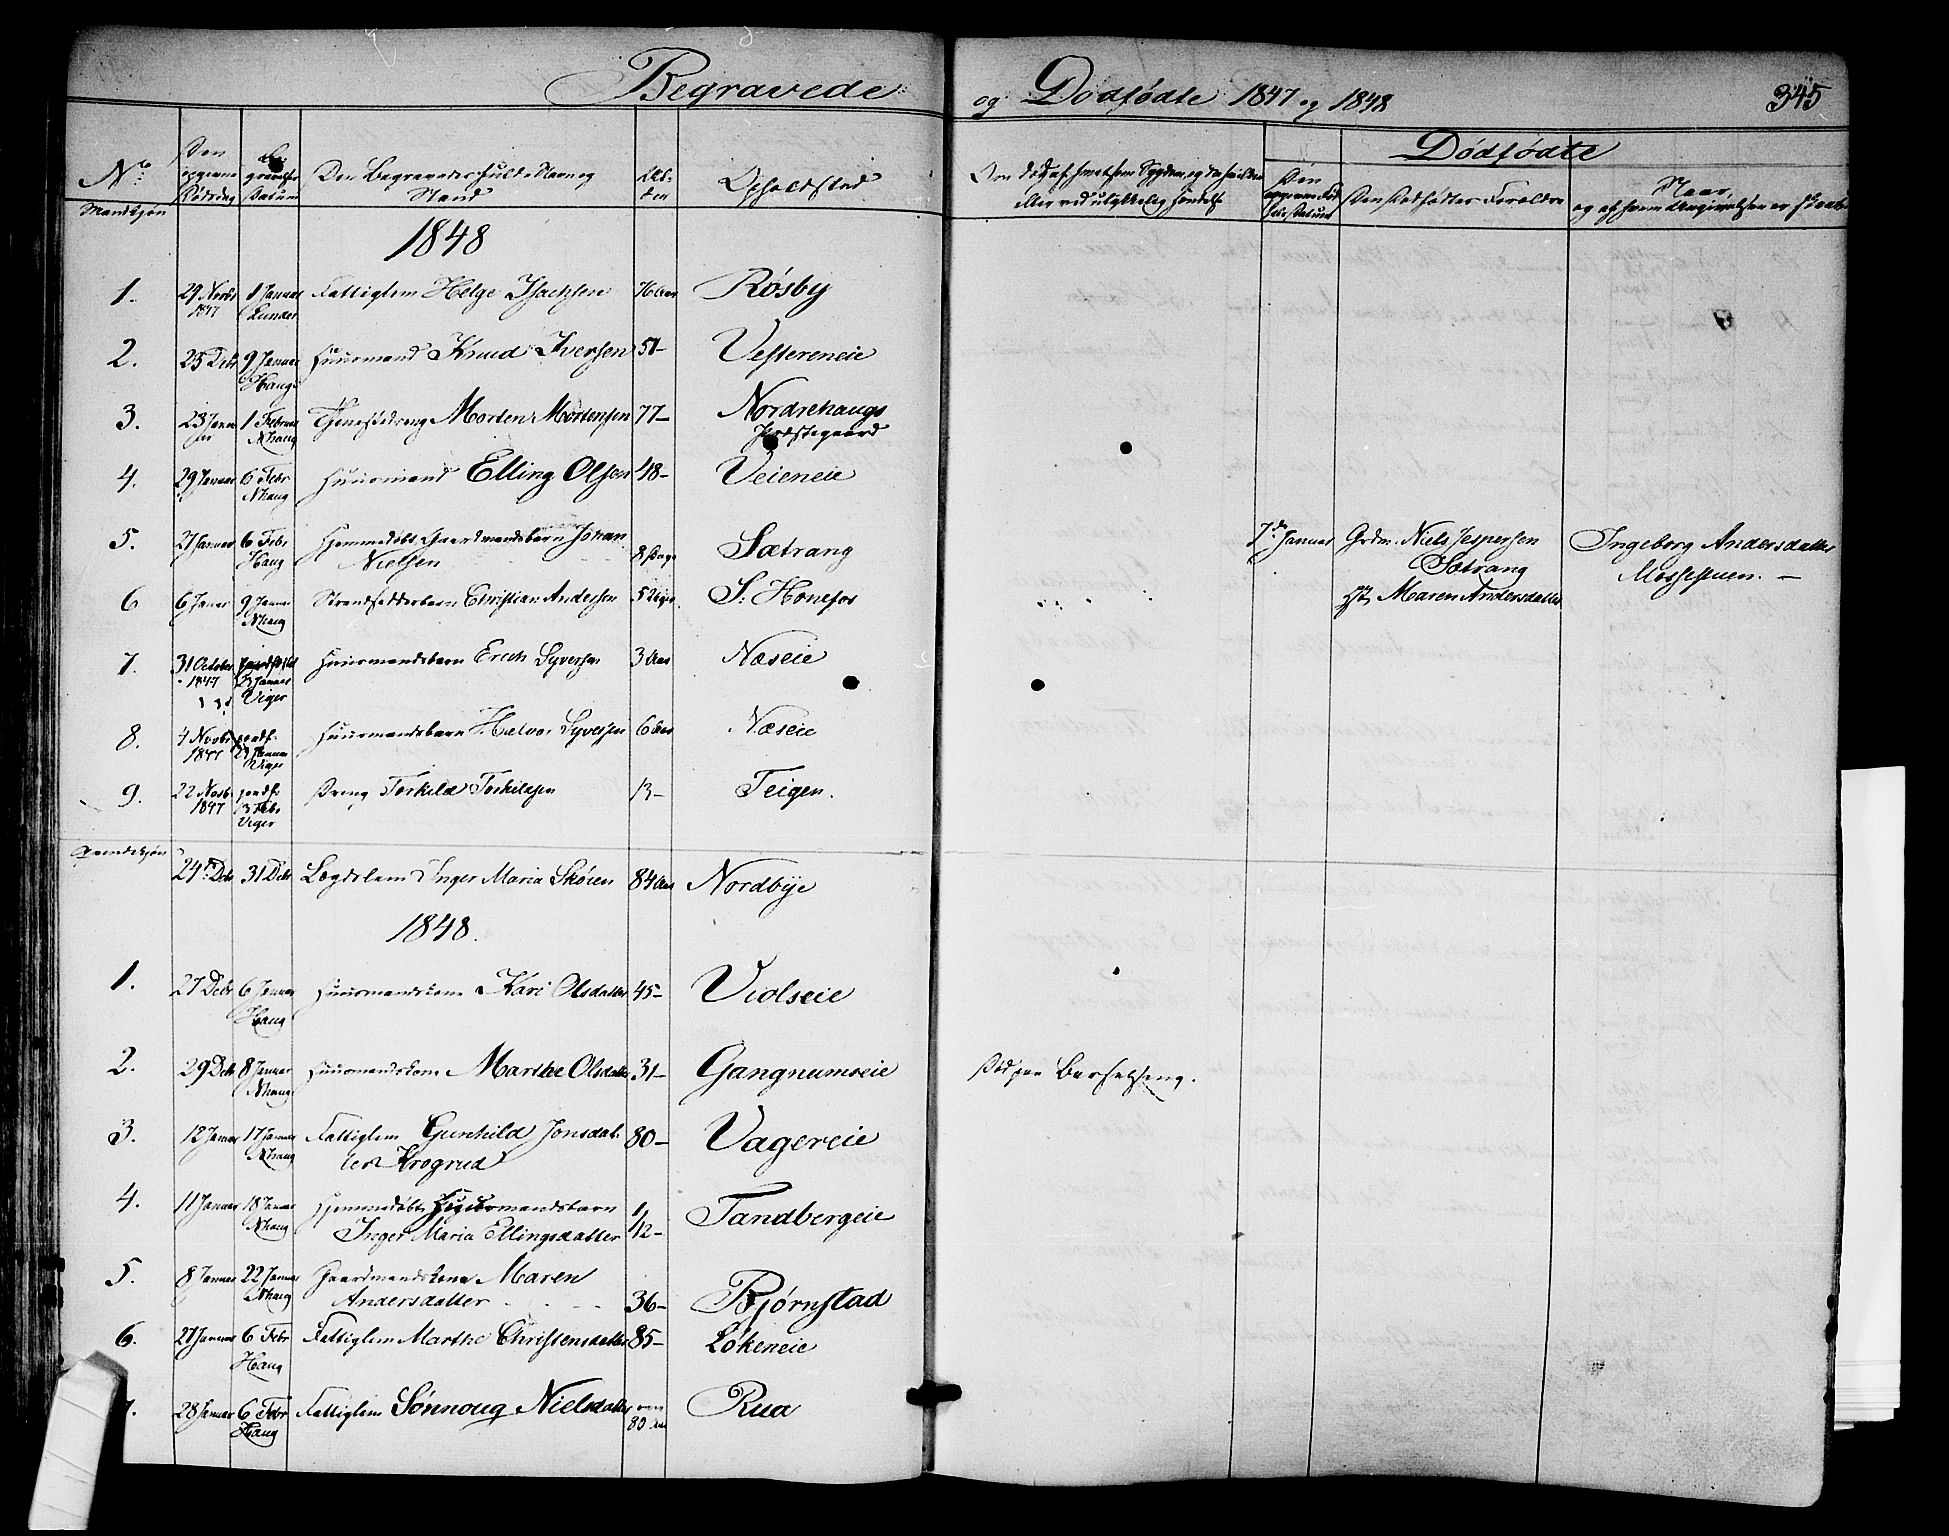 Begravede og Dødfødte 1847 og 1848 345
No Den opgivne Dødsdag Begravelses Datum Den Begravedes fulde Navn og Stand Alderen Opholdsted
Dødfødte
Den Dødfødtes Forældre
Mandkjøn
1848
1. 29 Novbr 1847 1 Januar Lunder Fattiglem Helge Isachsen 76 Aar Røsby
2. 25 Debr 9 Januar Haug Huusmand Knud Iversen 51- Vestereneie
3. 23 Januar 1 Februar Nhaug Tjenestedreng Morten Mortensen 77- Nordrehaugs Præstegaard
4. 29 Januar 6 Febr Nhaug Huusmand Elling Olsen 48- Veieneie
5. 27 Januar 6 Febr Haug Hjemmedøbt Gaardmandsbarn Johan Nielsen 8 Dage Sætrang
7de Januar Grdm. Niels Jespersen Sætrang og Maren Andersdatter
Ingeborg Andersdatter Mossestuen. —
6 6 Januar 9 Januar Nhaug Strandsidderbarn Christian Andersen 5 Uger S: Hønefos
7. 31 October 1847 jordfæstet 23 Januar Viger Huusmandsbarn Erich Syversen 3 Aar Næseie
8. 4 Novbr 1847 jordf. 23 Januar Viger Huusmandsbarn Halvor Syversen 6 Aar Næseie
9. 22 Novb. 1847 jordf. 13 Febr Viger Dreng Torkild Torkildsen 13- Teigen.
Qvindekjøn
24de Debr 31 Debr Lægdslem Inger Maria Skøien 84 Aar Nordbye
1848.
1. 27 Debr 6 Januar Haug Huusmandskone Kari Olsdatter 45- Violseie
2. 29 Debr 8 Januar Nhaug Huusmandskone Marthe Olsdatter 31- Gangnumseie Død paa Barselseng.
3. 12 Januar 17 Januar Nhaug Fattiglem Gunhild Jonsdatter Krogrud 80- Vagereie
4. 11 Januar 18 Januar Nhaug Hjemmedøbt Huusmandsbarn
Inger Maria Ellingsdatter 1/12- Tandbergeie
5. 8 Januar 22 Januar Nhaug Gaardmandskone Maren
Andersdatter 36- Bjørnstad
6. 27 Januar 6 Febr Haug Fattiglem Marthe Christensdatter 85- Løkeneie
7. 28 Januar 6 Febr Haug Fattiglem Sønnoug Nielsdatter over 80 Aar Rua